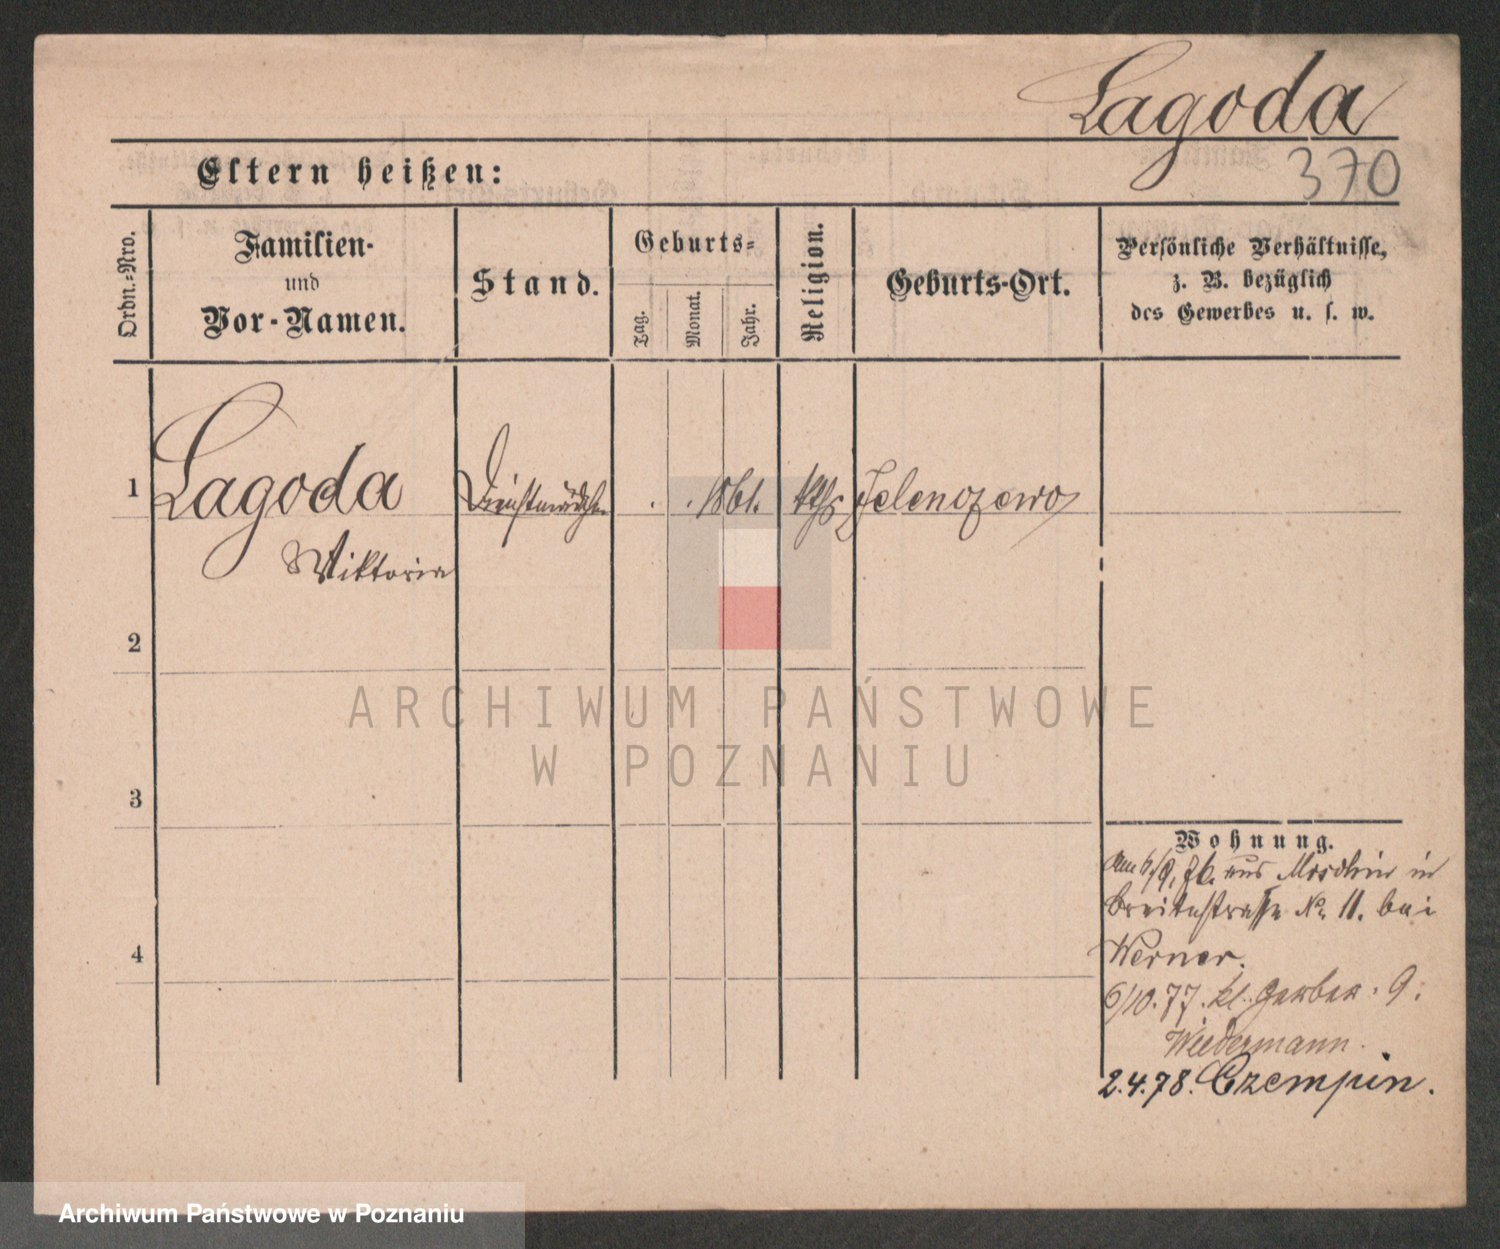 Lagoda
370
Eltern heißen:
Ordn.-Nro.
Familien-
und
Vor-Namen.
Stand.
Geburts-
Tag.
Monat.
Jahr.
Religion.
Geburts-Ort.
Persönliche Verhältnisse,
z. B. bezüglich
des Gewerbes u. s. w.
1 Lagoda Dienstmädchen . . 1861. kth
Viktoria
2
3
4
ARCHIWUM PAŃSTWOWE
W POZNANIU
Wohnung.
Am 6/9. 76. aus Moschin in
Breitestrasse No 11. bei
Werner.
6/10.77. kl. Gerber. 9.
Wiedermann.
2.4.78. Czempin.
Archiwum Państwowe w Poznaniu